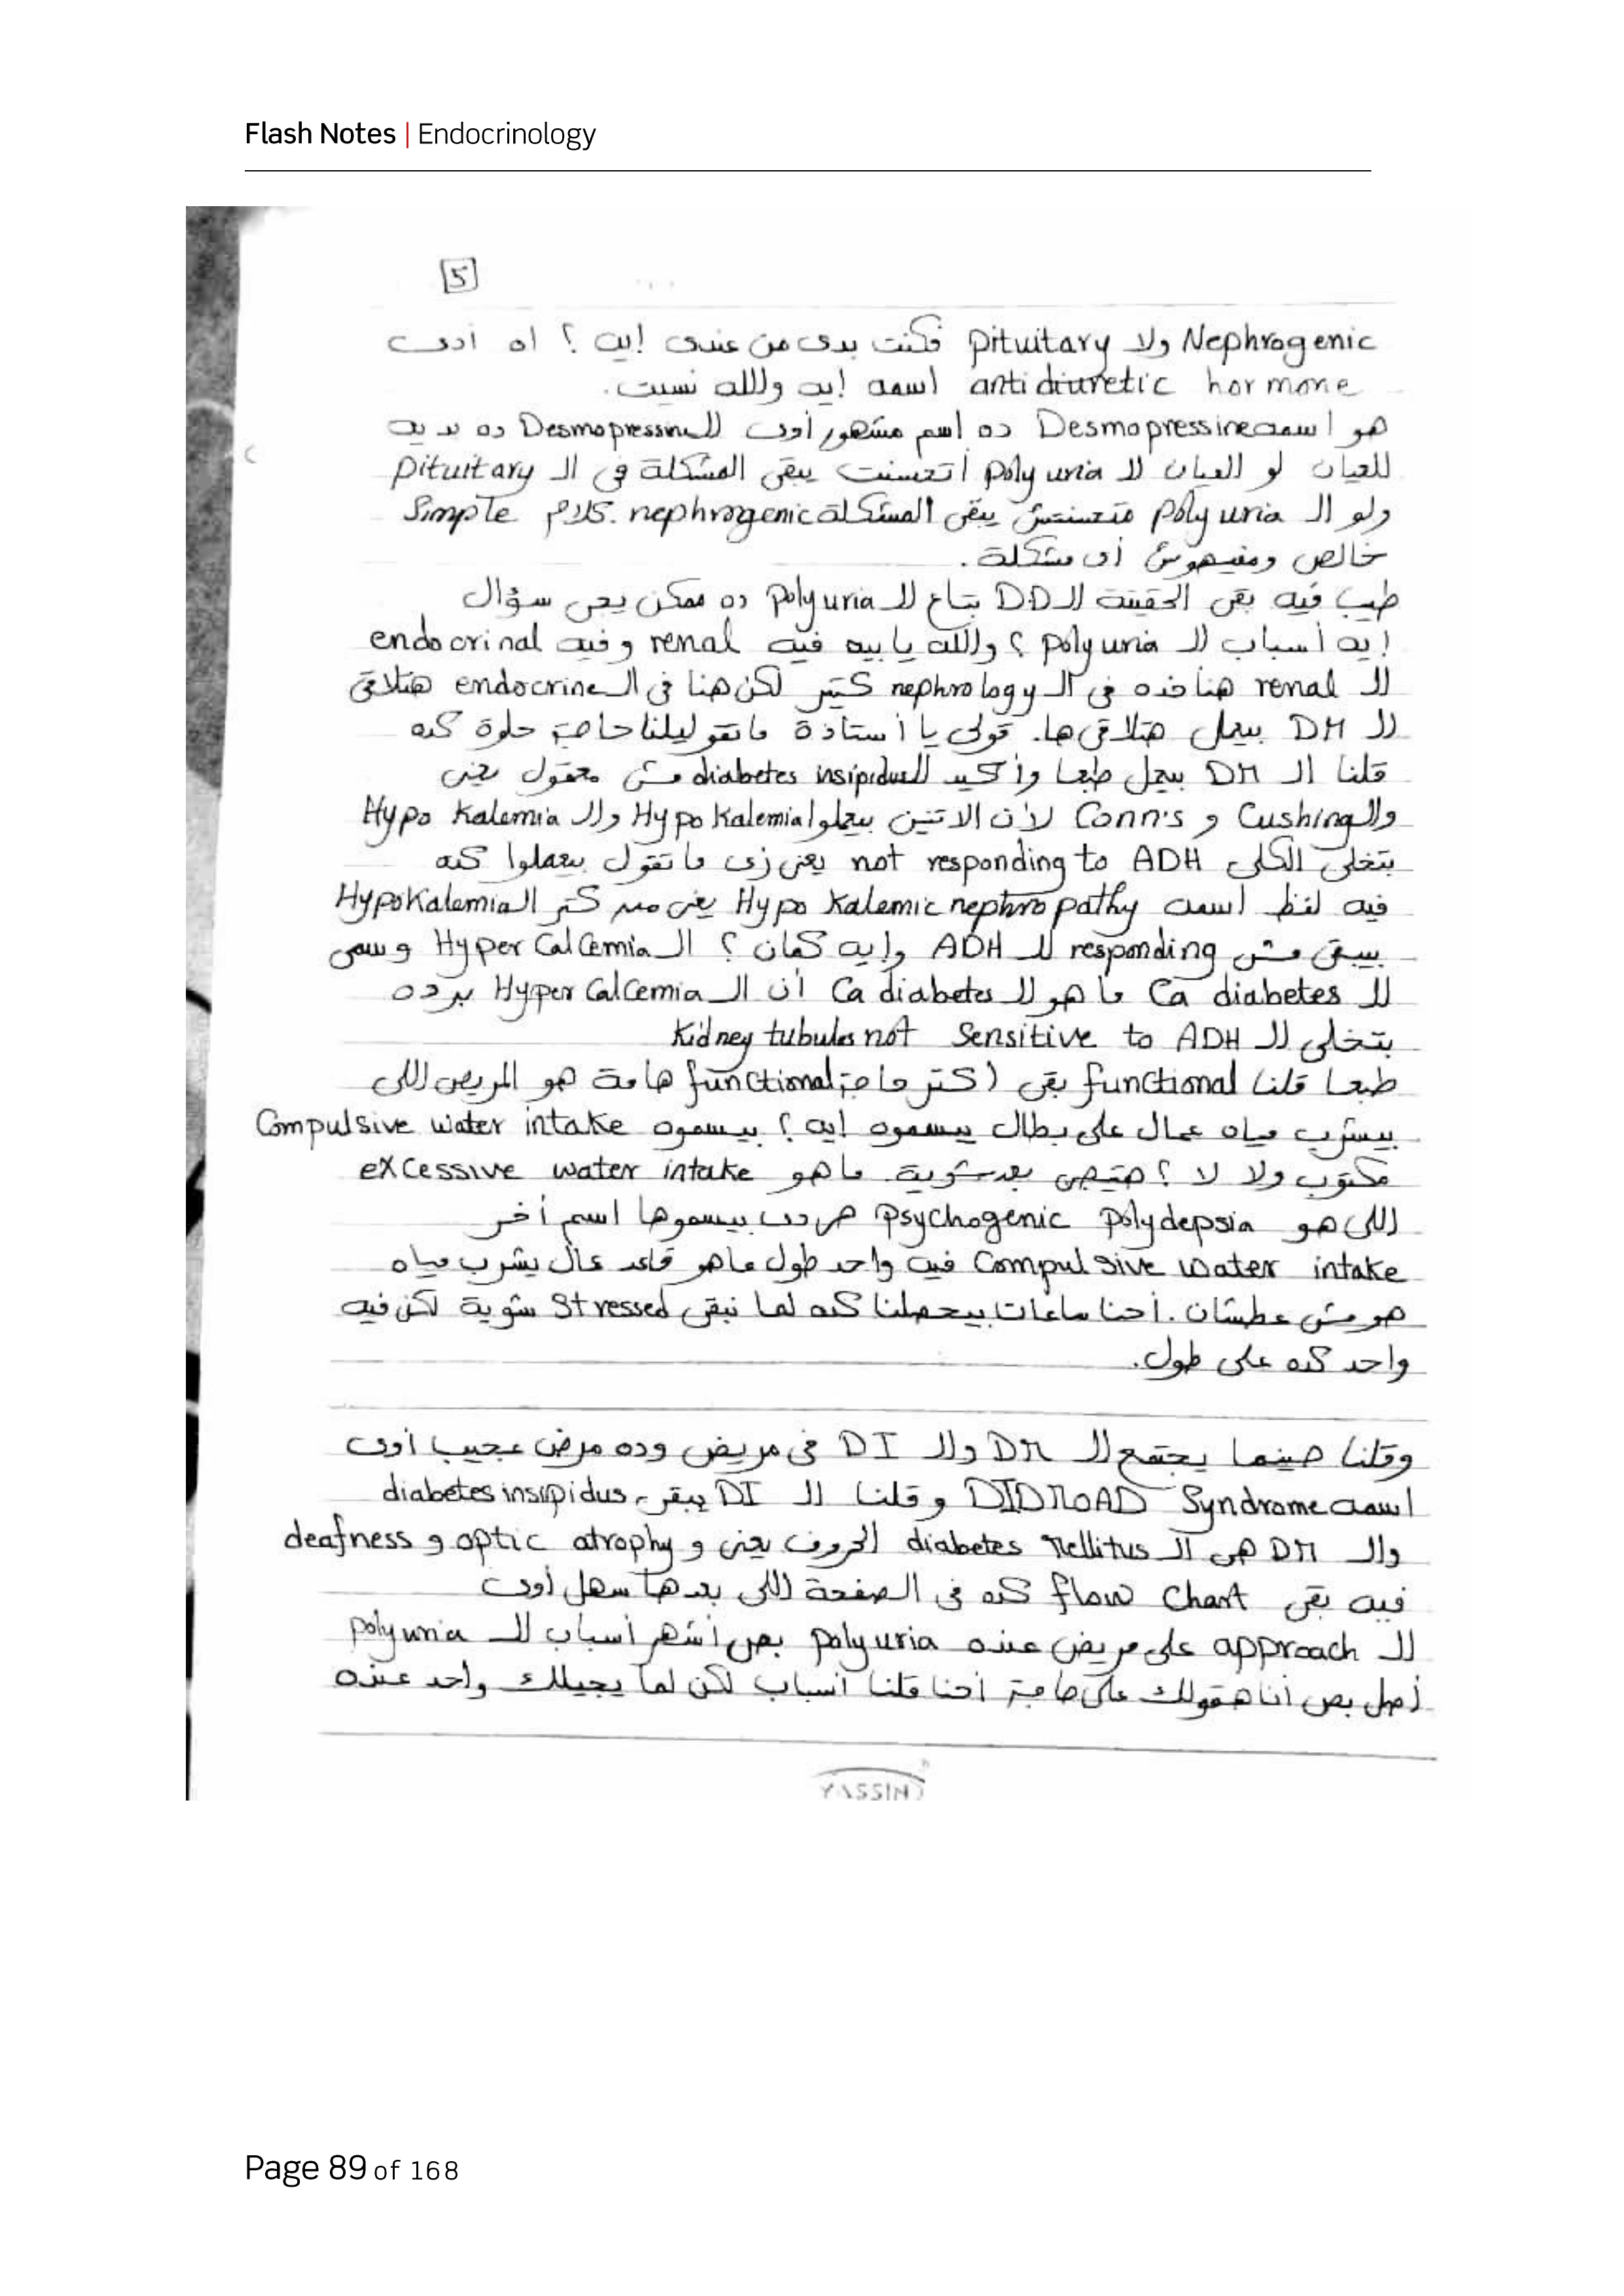 Flash Notes | Endocrinology
5
Nephrogenic ولا pituitary فكنت بدى من عندى إيه ؟ اه ادى
antidiuretic hormone اسمه إيه والله نسيت.
هو اسمه Desmopressine ده اسم مشهور أوى للـ Desmopressin ده بديه
للعيان لو العيان الـ polyuria اتحسنت يبقى المشكلة فى الـ pituitary
ولو الـ polyuria متحسنتش يبقى المشكلة nephrogenic. كلام Simple
خالص ومفيهوش أى مشكلة.
طيب فيه بقى الحقيقة الـ D.D بتاع الـ polyuria ده ممكن يجى سؤال
إيه أسباب الـ polyuria ؟ والله يا بيه فيه renal و فيه endocrinal
الـ renal هناخده فى الـ nephrology كتير لكن هنا فى الـ endocrine هتلاقى
الـ DM بيعمل هتلاقى ها. قولى يا أستاذة ماتقوليلنا حاجة حلوة كده
قلنا الـ DM بيعمل طبعا وأكيد الـ diabetes insipidus مش معقول يعنى
والـ Cushing و Conn's لأن الاتنين بيعملوا Hypokalemia والـ Hypo Kalemia
بتخلى الكلى not responding to ADH يعنى زى ما تقول بيعملوا كده
فيه لفظ اسمه Hypo Kalemic nephropathy يعنى من كتر الـ HypoKalemia
بيبقى مش responding للـ ADH وإيه كمان ؟ الـ Hyper CalCemia وسمى
الـ Ca diabetes ما هو الـ Ca diabetes أن الـ Hyper CalCemia برده
بتخلى الـ Kidney tubules not Sensitive to ADH
طبعا قلنا functional بقى (كتر حاجة functional هامة هو المريض اللى
بيشرب مياه عمال على بطال بيسموه إيه ؟ بيسموه Compulsive water intake
مكتوب ولا لا ؟ هتيجى بعد شوية. ماهو excessive water intake
اللى هو psychogenic polydepsia هى دى بيسموها اسم أخر
Compulsive water intake فيه واحد طول ماهو قاعد عال يشرب مياه
هو مش عطشان. أحنا ساعات بيحصلنا كده لما نبقى Stressed شوية لكن فيه
واحد كده على طول.
وقلنا حينما يجتمع الـ DM والـ DI فى مريض وده مرض عجيب أوى
اسمه DIDMOAD Syndrome و قلنا الـ DI يبقى diabetes insipidus
والـ DM هى الـ diabetes Mellitus الحروف يعنى و optic atrophy و deafness
فيه بقى flow Chart كده فى الصفحة اللى بعدها سهل أوى
الـ approach على مريض عنده polyuria بص أشهر أسباب الـ polyuria
أصل بص أنا هقولك على حاجة أحنا قلنا أسباب لكن لما يجيلك واحد عنده
YASSIN
Page 89 of 168